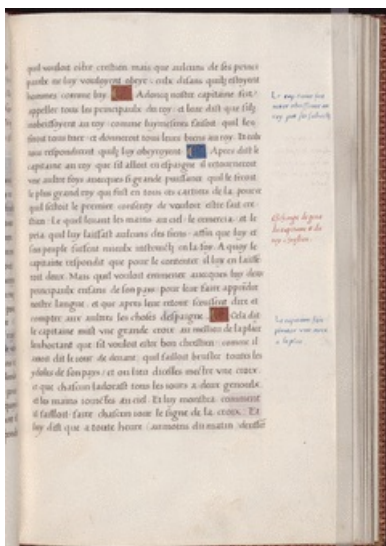 quil vouloit estre crestien mais que aulcuns de ses princi
paulx ne luy vouloyent obeyr : eulx disans quilz estoyent
hommes comme luy. Adoncq nostre capitaine fist
appeller tous les principaulx du roy : et leur dist que silz
nobeissoyent au roy : comme luymesmes faisoit : quil les
feroit tous tuer : et donneroit tous leurs biens au roy. Et eulx
tous respondirent quilz luy obeyroyent. Apres dist le
capitaine au roy que sil alloit en espaigne il retourneroit
une aultre foys avecques si grande puissance quil le feroit
le plus grand roy qui fust en tous ces cartiers de la. pource
quil estoit le premier
tien. Le quel levant les mains au ciel : le remercia : et le
pria quil luy laissast aulcuns des siens : affin que luy et
son peuple fussent mieulx instruictz en la foy. A quoy le
capitaine respondit que pour le contenter il luy en laisse
roit deux. Mais quil vouloit emmener avecques luy deux
principaulx enfans de son pays : pour leur faire apprendre
nostre langue : et que apres leur retour sceussent dire et
compter aux aultres les choses despaigne. Cela dit
le capitaine mist une grande croix au mellieu de la place
lenhortant que sil vouloit estre bon chrestien : comme il
avoit dit le iour de devant : quil failloit brusler toutes les
ydoles de son pays : et ou lieu dicelles mestre une croix
et que chascun ladorast tous les iours a deux genoulx
et les mains ioinctes au ciel. Et luy monstra comment
il failloit faire chascun iour le signe de la croix. Et
luy dist que a toute heure : au moins du matin : deussent